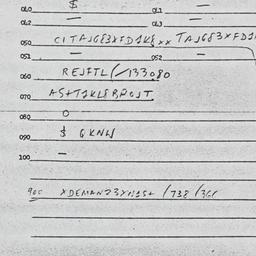 040 $ 041 —
042 — 043 —
050 CITAJG83XFD1K8xx TAJG83XFD1
051 — 052 —
060 REJFTL(/133080
070 AS+T1KL8RPOJT
080 0
090 $ GKNW
100 —
900 XDEMAN23XN1S+ /738 /361